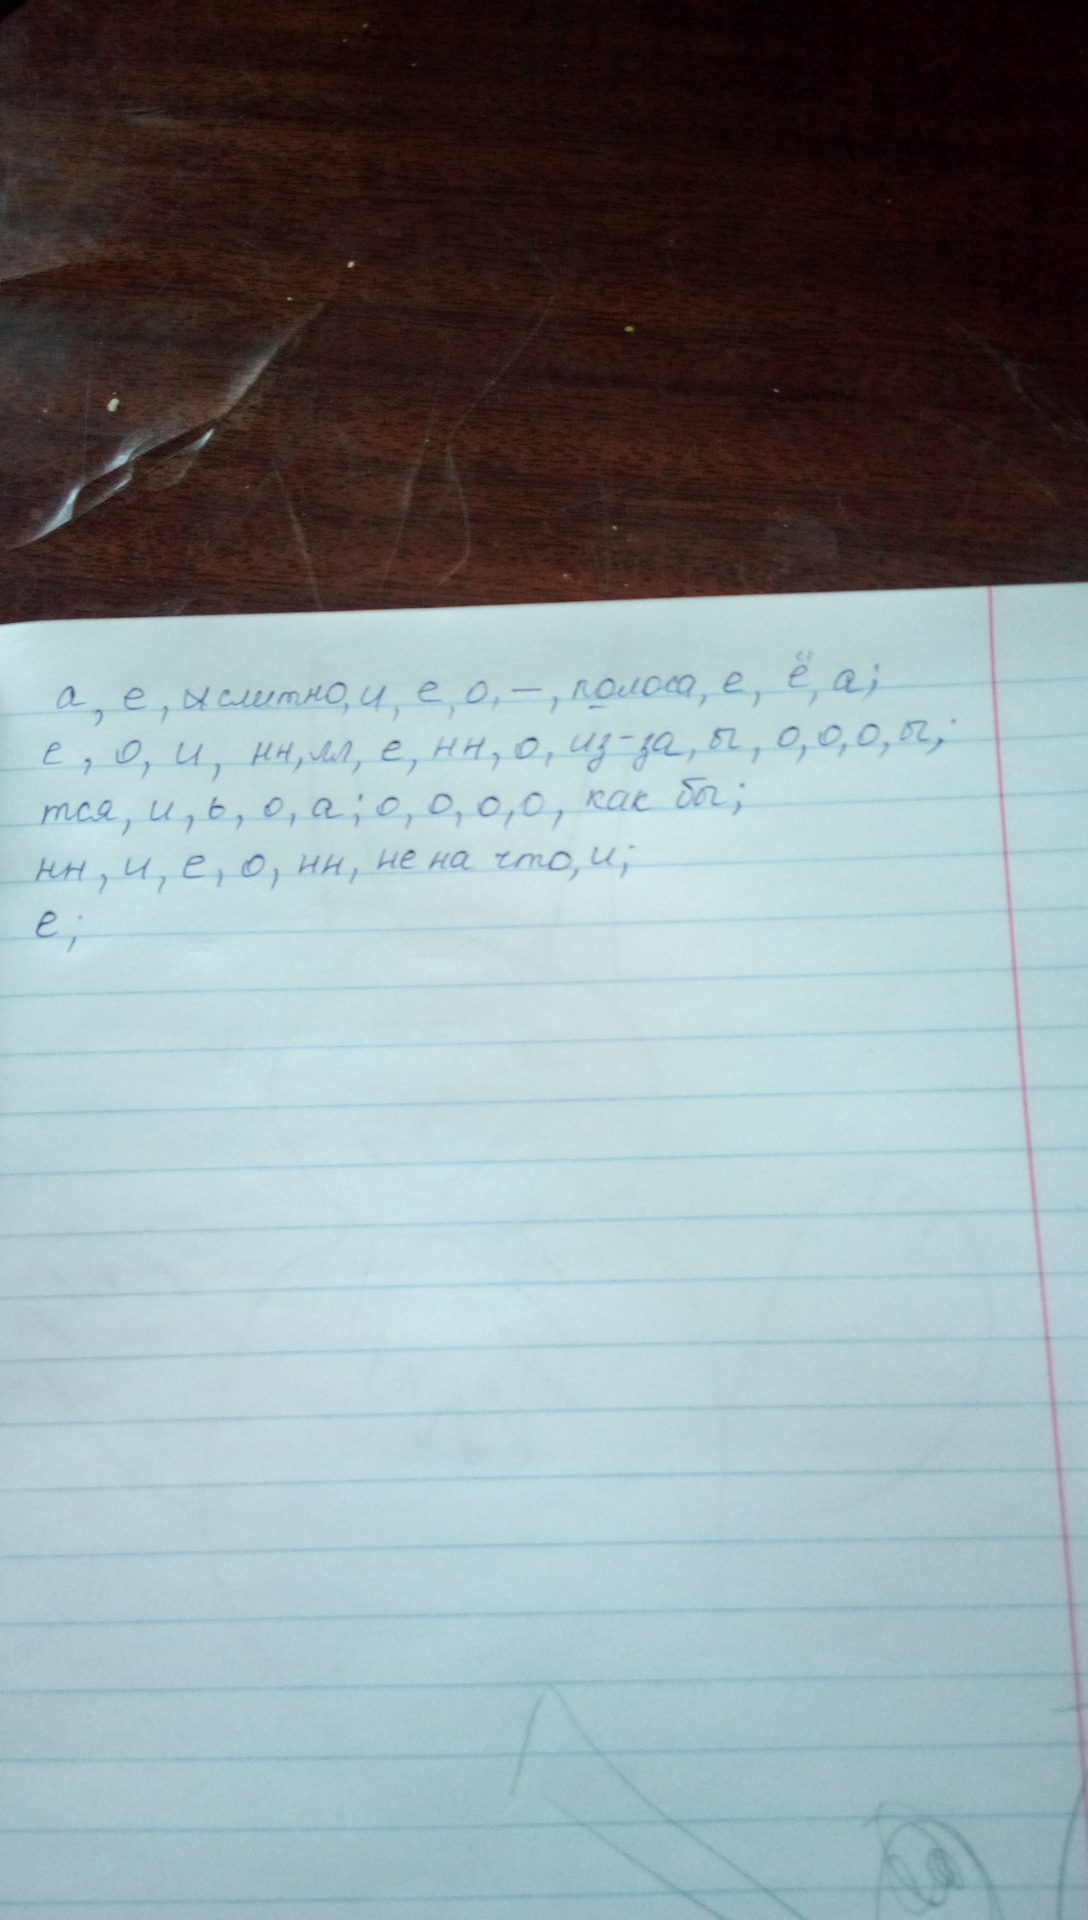 а, е, слитно, и, е, о, –, полоса, е, ё, а;
е, о, и, нн, лл, е, нн, о, из-за, ы, о, о, о, ы;
тся, и, ь, о, а; о, о, о, о, как бы;
нн, и, е, о, нн, не на что, и;
е;